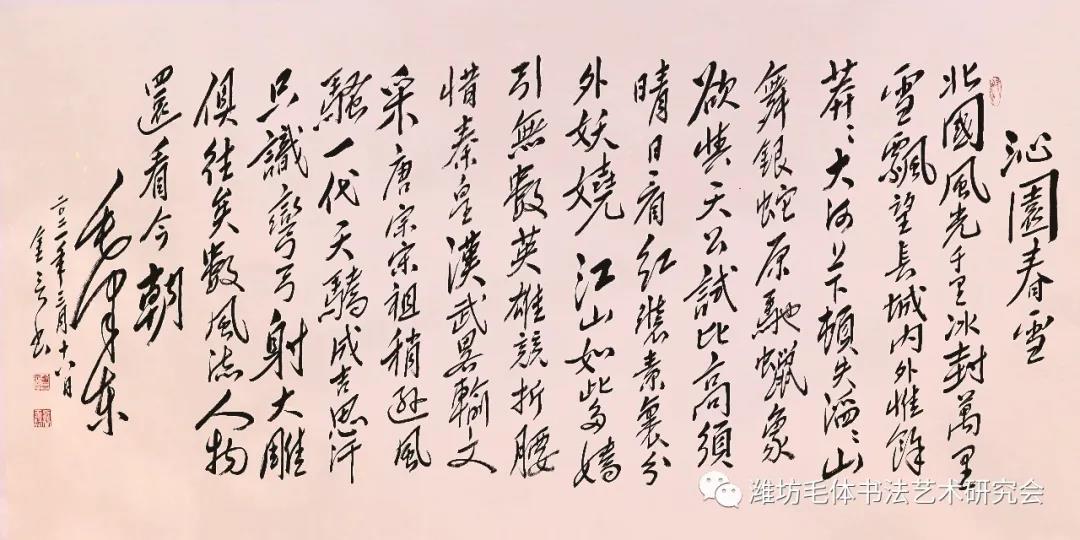 沁園春雪
北國風光千里冰封萬里
雪飄望長城内外惟餘
莽〻大河上下頓失滔〻山
舞銀蛇原馳蠟象
欲與天公試比高須
晴日看紅裝素裹分
外妖嬈江山如此多嬌
引無數英雄競折腰
惜秦皇漢武畧輸文
采唐宗宋祖稍遜風
騷一代天驕成吉思汗
只識彎弓射大雕
俱往矣數風流人物
還看今朝
毛澤東
二〇二一年三月十八日
书
潍坊毛体书法艺术研究会